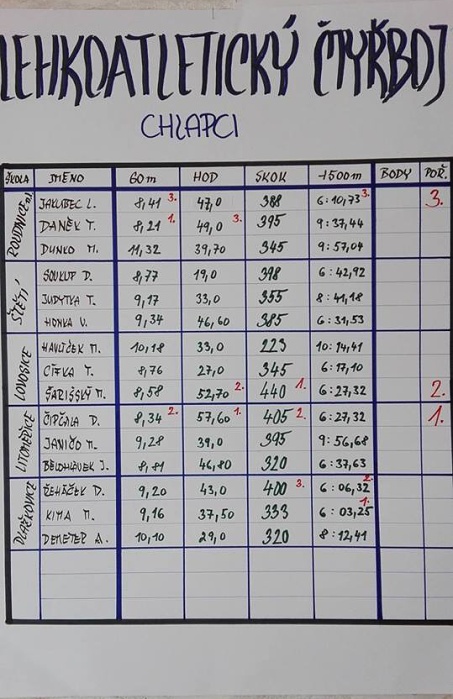 LEHKOATLETICKÝ ČTYŘBOJ
CHLAPCI
ŠKOLA JMÉNO 60m HOD SKOK 1500m BODY POŘ.
ROUDNICE n.L.
JAKUBEC L. 8,41 3. 47,0 388 6:10,73 3. 3.
DANĚK T. 8,21 1. 49,0 3. 395 9:37,44
DUNKO M. 11,32 39,70 345 9:57,04
ŠTĚTÍ
SOUKUP D. 8,77 19,0 398 6:42,92
JUDYTKA T. 9,17 33,0 355 8:41,18
HONKA V. 9,34 46,60 385 6:31,53
LOVOSICE
HAVLÍČEK M. 10,18 33,0 223 10:14,41
CÍFKA T. 8,76 27,0 345 6:17,10
ŠARIŠSKÝ M. 8,58 52,70 2. 440 1. 6:27,32 2.
LITOMĚŘICE
ČIPČALA D. 8,34 2. 57,60 1. 405 2. 6:27,32 1.
JANIČO M. 9,28 39,0 395 9:56,68
BĚLOHLÁVEK J. 8,81 46,80 320 6:37,63
VLAŠKOVICE
ŘEHÁČEK D. 9,20 43,0 400 3. 6:06,32 2.
KIMA M. 9,16 37,50 333 6:03,25 1.
DEMETER A. 10,10 29,0 320 8:12,41